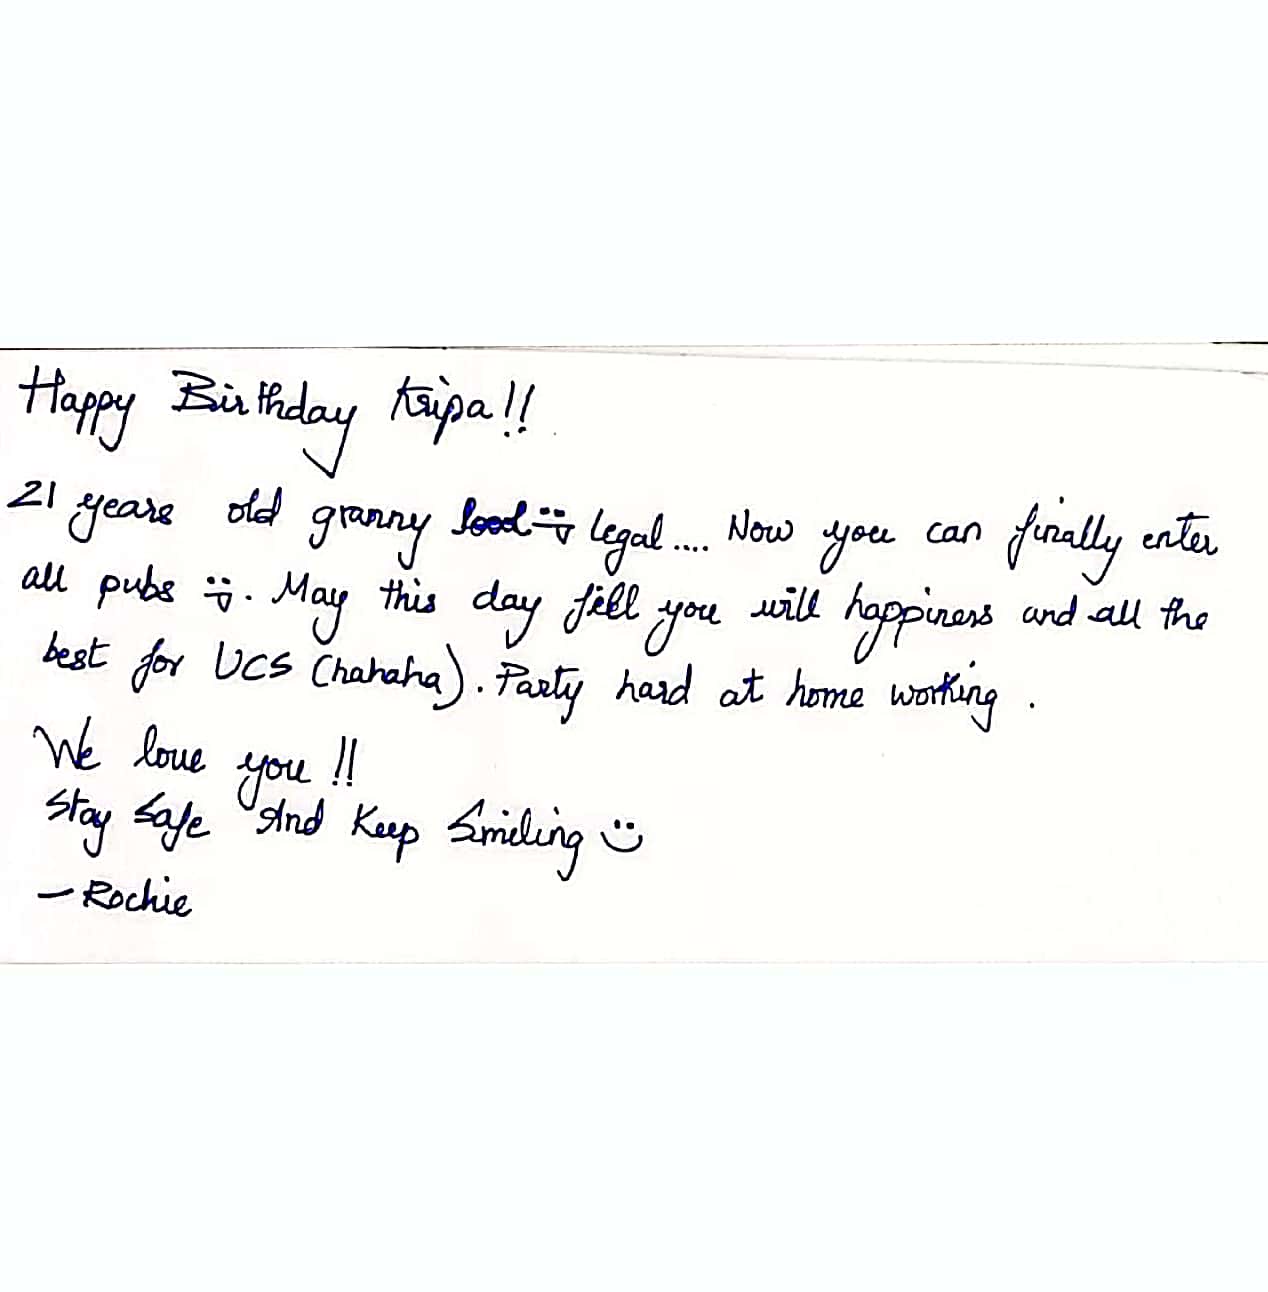 Happy Birthday Kripa!!
21 years old granny legal.... Now you can finally enter
all pubs. May this day fill you will happiness and all the
best for UCS (hahaha). Party hard at home working.
We love you!!
Stay Safe And Keep Smiling
- Rochie